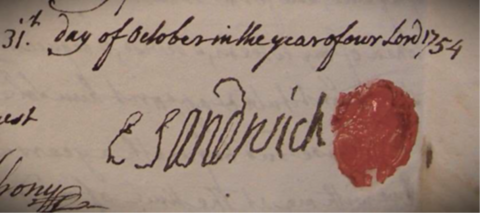 31.th day of October in the year of our Lord 1754
E Sandwich